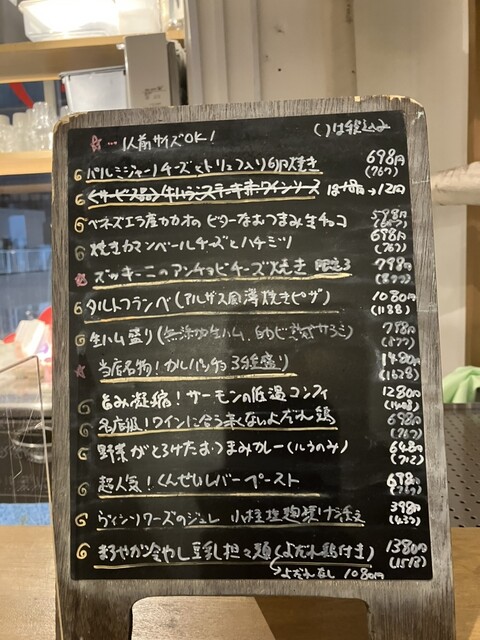 ☆…1人前サイズOK! ( )は税込み
パルミジャーノチーズとトリュフ入り卵焼き 698円 (767)
くサービス品 牛ハラミステーキ赤ワインソース 1848→12円
ベネズエラ産カカオの ビターなおつまみ生チョコ 598円
焼きカマンベールチーズとハチミツ 698円 (767)
ズッキーニのアンチョビチーズ焼き 限定3 798円 (877)
タルトフランベ(アルザス風薄焼きピザ) 1080円 (1188)
生ハム盛り(無添加生ハム、サラミ) 798円 (877)
当店名物!カルパッチョ3種盛り 1480円 (1628)
旨み凝縮!サーモンの低温コンフィ 1280円 (1408)
名店級!ワインに合う来ないよだれ鶏 698円 (767)
野菜がとろけたおつまみカレー(ルウのみ) 648円 (712)
超人気!くんせいレバーペースト 698円 (767)
ヴィシソワーズのジュレ 小柱 398円 (437)
まろやか冷やし豆乳担々麺(よだれ鶏付き) 1380円 (1518)
よだれなし 1080円